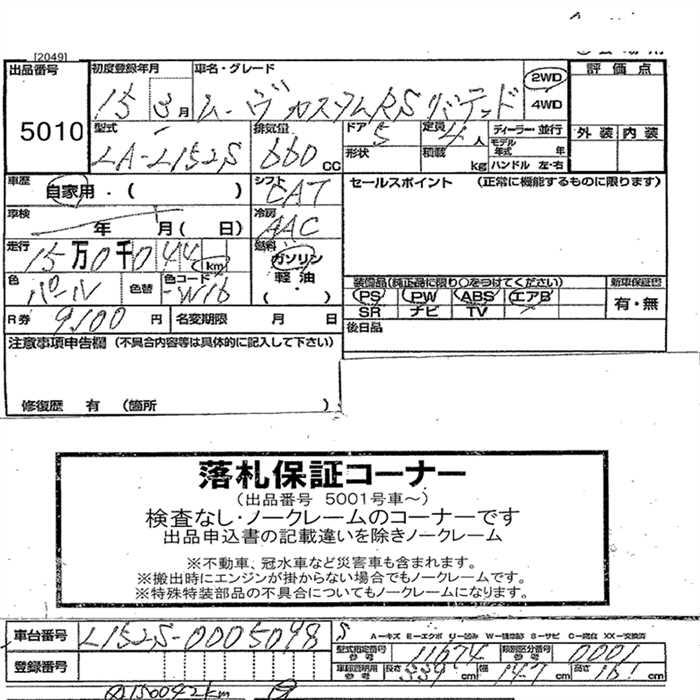 [2049]
出品番号 5010
初度登録年月 15 3月
車名・グレード ムーヴカスタムRSリミテッド
2WD
4WD
評価点
外装 内装
型式 LA-L152S
排気量 660 CC
ドア 5
形状
定員 4人
積載 kg
ディーラー・並行
モデル年式 年
ハンドル 左・右
車歴 自家用・( )
シフト CAT
車検 年 月( 日)
冷房 AAC
走行 15万0千044km
燃料 ガソリン
軽油
( ・ )
色 パール 色替
色コード W16
R券 9500円 名変期限 月 日
セールスポイント (正常に機能するものに限ります)
装備品(純正品に限り○をつけてください)
PS PW ABS エアB
SR ナビ TV
新車保証書
有・無
後日品
注意事項申告欄 (不具合内容等は具体的に記入して下さい)
修復歴 有 (箇所 )
落札保証コーナー
(出品番号 5001号車~)
検査なし・ノークレームのコーナーです
出品申込書の記載違いを除きノークレーム
※不動車、冠水車など災害車も含まれます。
※搬出時にエンジンが掛からない場合でもノークレームです。
※特殊特装部品の不具合についてもノークレームになります。
車台番号 L152S-0005098 S
A-キズ E-エクボ U-凹み W-補修跡 S-サビ C-腐食 XX-交換済
型式指定番号 参考 11674
類別区分番号 参考 0001
登録番号
車検証明用 参考 長さ 339cm 幅 147cm 高さ 161cm
150042km